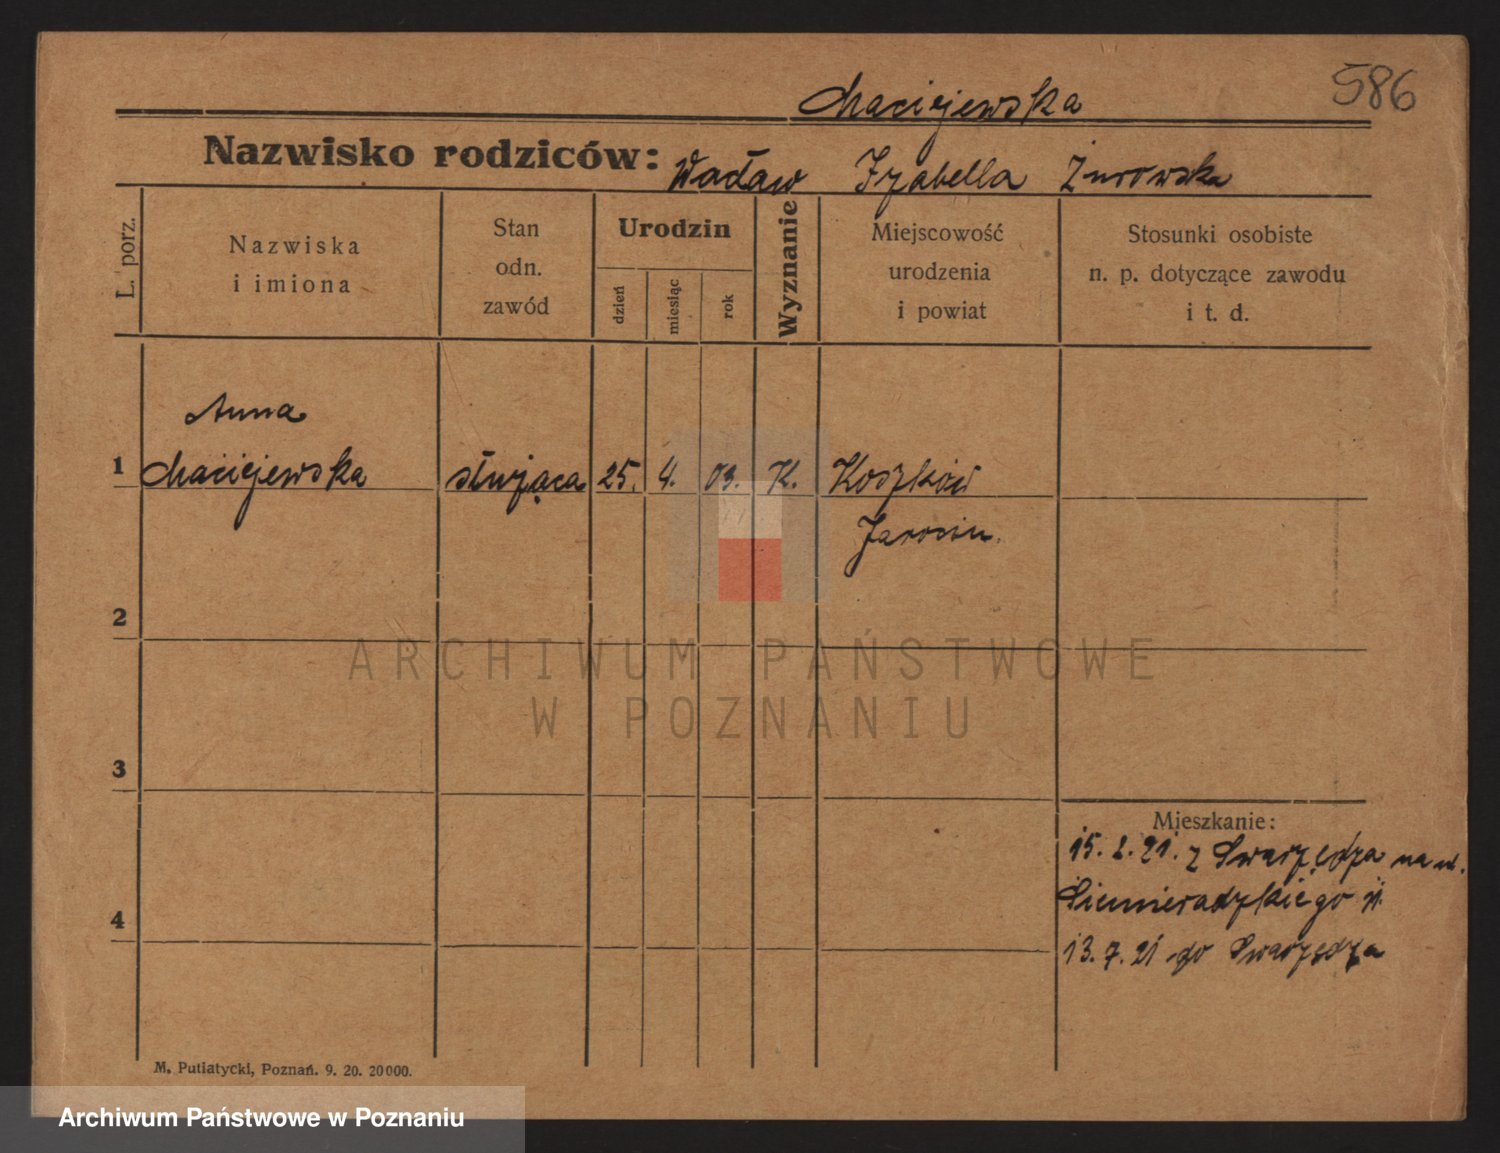 586
Maciejewska
Nazwisko rodziców: Wacław Izabella Żurowska
L. porz.
Nazwiska
i imiona
Stan
odn.
zawód
Urodzin
dzień
miesiąc
rok
Wyznanie
Miejscowość
urodzenia
i powiat
Stosunki osobiste
n. p. dotyczące zawodu
i t. d.
Anna
1 Maciejewska służąca 25. 4. 03. K. Koszków
Jarocin.
2
ARCHIWUM PAŃSTWOWE
W POZNANIU
3
Mieszkanie:
15. 2. 21. z Swarzędza na ul.
Siemieradzkiego
4
13. 7. 21 do Swarzędza
M. Putiatycki, Poznań. 9. 20. 20000.
Archiwum Państwowe w Poznaniu